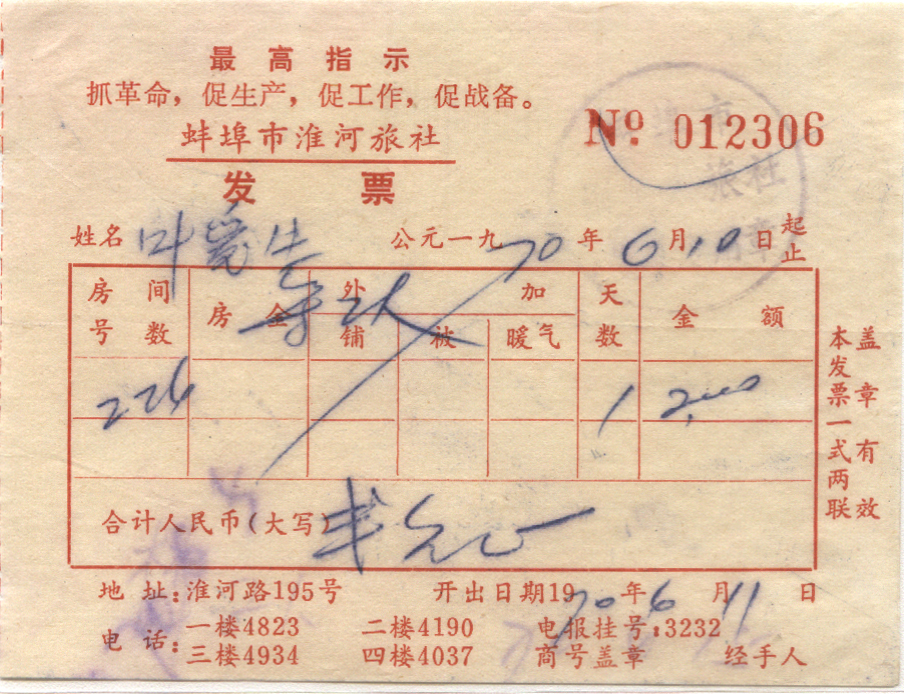 最高指示
抓革命，促生产，促工作，促战备。
蚌埠市淮河旅社
No. 012306
发票
姓名 叶 公元一九70年6月10日起止
房间号数 房金 外加 天数 金额
铺 被 暖气
226 1 2.00
合计人民币(大写) 弍元正
本发票一式两联
盖章有效
地址:淮河路195号 开出日期1970年6月11日
电话: 一楼4823 二楼4190 电报挂号:3232
三楼4934 四楼4037 商号盖章 经手人